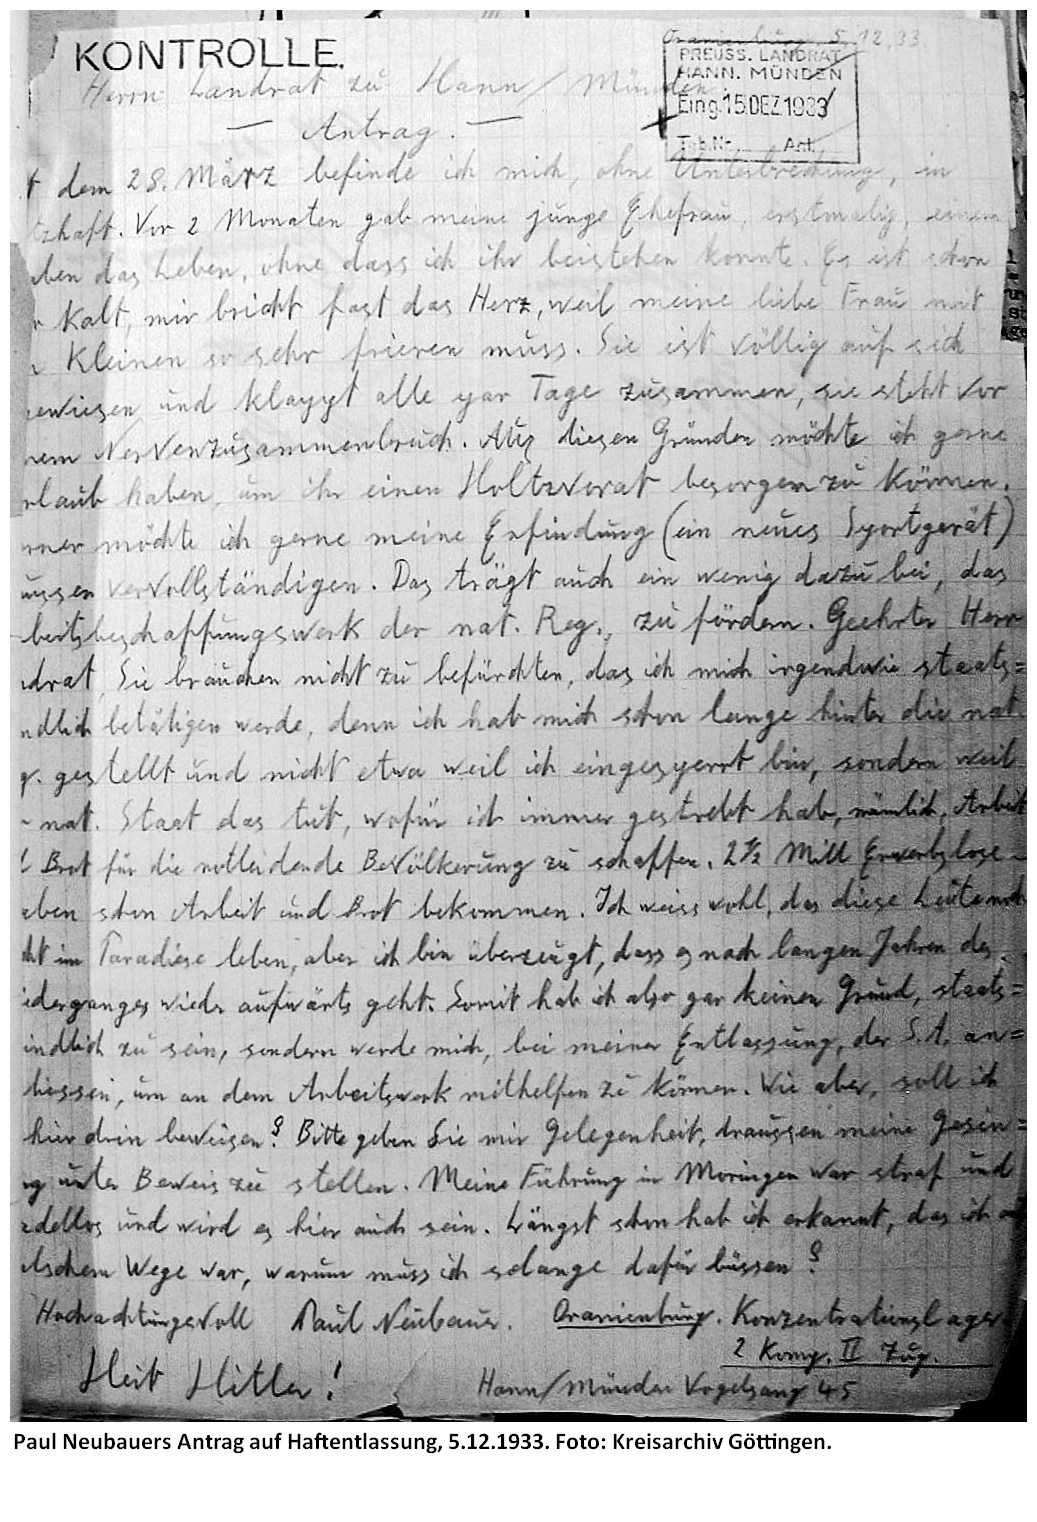 KONTROLLE.
Oranienburg 5.12.33.
PREUSS. LANDRAT
HANN. MÜNDEN
Eing. 15. DEZ. 1933
T.b.Nr. Anl.
Herrn Landrat zu Hann/Münden.
— Antrag. —
t dem 28. März befinde ich mich, ohne Unterbrechung, in
tzhaft. Vor 2 Monaten gab meine junge Ehefrau, erstmalig, einem
aben das Leben, ohne dass ich ihr beistehen konnte. Es ist schon
r kalt, mir bricht fast das Herz, weil meine liebe Frau mit
n Kleinen so sehr frieren muss. Sie ist völlig auf sich
ewiesen und klappt alle par Tage zusammen, sie steht vor
nem Nervenzusammenbruch. Aus diesen Gründen möchte ich gerne
rlaub haben, um ihr einen Holtzvorat besorgen zu können.
rner möchte ich gerne meine Erfindung (ein neues Sportgerät)
ussen vervollständigen. Das trägt auch ein wenig dazu bei, das
beitsbeschaffungswerk der nat. Reg., zu fördern. Geehrter Herr
drat, Sie brauchen nicht zu befürchten, das ich mich irgendwie staats=
ndlich betätigen werde, denn ich hab mich schon lange hinter die nat.
g. gestellt und nicht etwa weil ich eingesperrt bin, sondern weil
r nat. Staat das tut, wofür ich immer gestrebt hab, nämlich, Arbeit
d Brot für die notleidende Bevölkerung zu schaffen. 2½ Mill Erwerbslose
aben schon Arbeit und Brot bekommen. Ich weiss wohl, das diese Leute noch
cht im Paradiese leben, aber ich bin überzeugt, dass es nach langen Jahren des
iederganges wieder aufwärts geht. Somit hab ich also gar keinen Grund, staats=
indlich zu sein, sondern werde mich, bei meiner Entlassung, der S.A. an=
liessen, um an dem Arbeitswerk mithelfen zu können. Wie aber, soll ich
hier drin beweisen? Bitte geben Sie mir Gelegenheit, draussen meine Gesin=
ng unter Beweis zu stellen. Meine Führung in Moringen war straf und
adellos und wird es hier auch sein. Längst schon hab ich erkannt, das ich auf
alschem Wege war, warum muss ich solange dafür büssen?
Hochachtungsvoll Paul Neubauer. Oranienburg. Konzentrationslager
2 Komp. II Zug.
Heil Hitler! Hann/Münden Vogelsang 45
Paul Neubauers Antrag auf Haftentlassung, 5.12.1933. Foto: Kreisarchiv Göttingen.